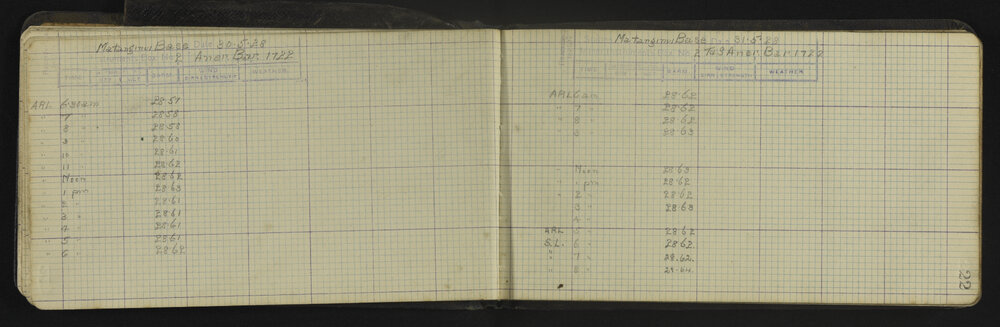 Matangirui Base Date 30-5-28
Aneroid Bar. No. 2 Aner. Bar. 1722
TIME DRY WET BARM. WIND DIRN & STRENGTH WEATHER
ARL 6 30 am 28.57
" 7 " 28.58
" 8 " " 28.58
" 9 " 28.60
" 10 " 28.61
" 11 " 28.62
" Noon 28.62
" 1 pm 28.63
" 2 " 28.61
" 3 " 28.61
" 4 " 28.61
" 5 " 28.61
" 6 " 28.62
Matangirui Base 31-5-28
2 Aner. Bar. 1722
TIME WET BARM. WIND DIRN & STRENGTH WEATHER
ARL 6 am 28.62
" 7 " 28.62
" 8 " 28.62
" 9 " 28.63
" Noon 28.63
" 1 pm 28.62
" 2 " 28.62
" 3 " 28.63
" 4 "
ARL 5 " 28.62
S.L. 6 " 28.62
" 7 " 28.62.
" 8 " 28.64.
22